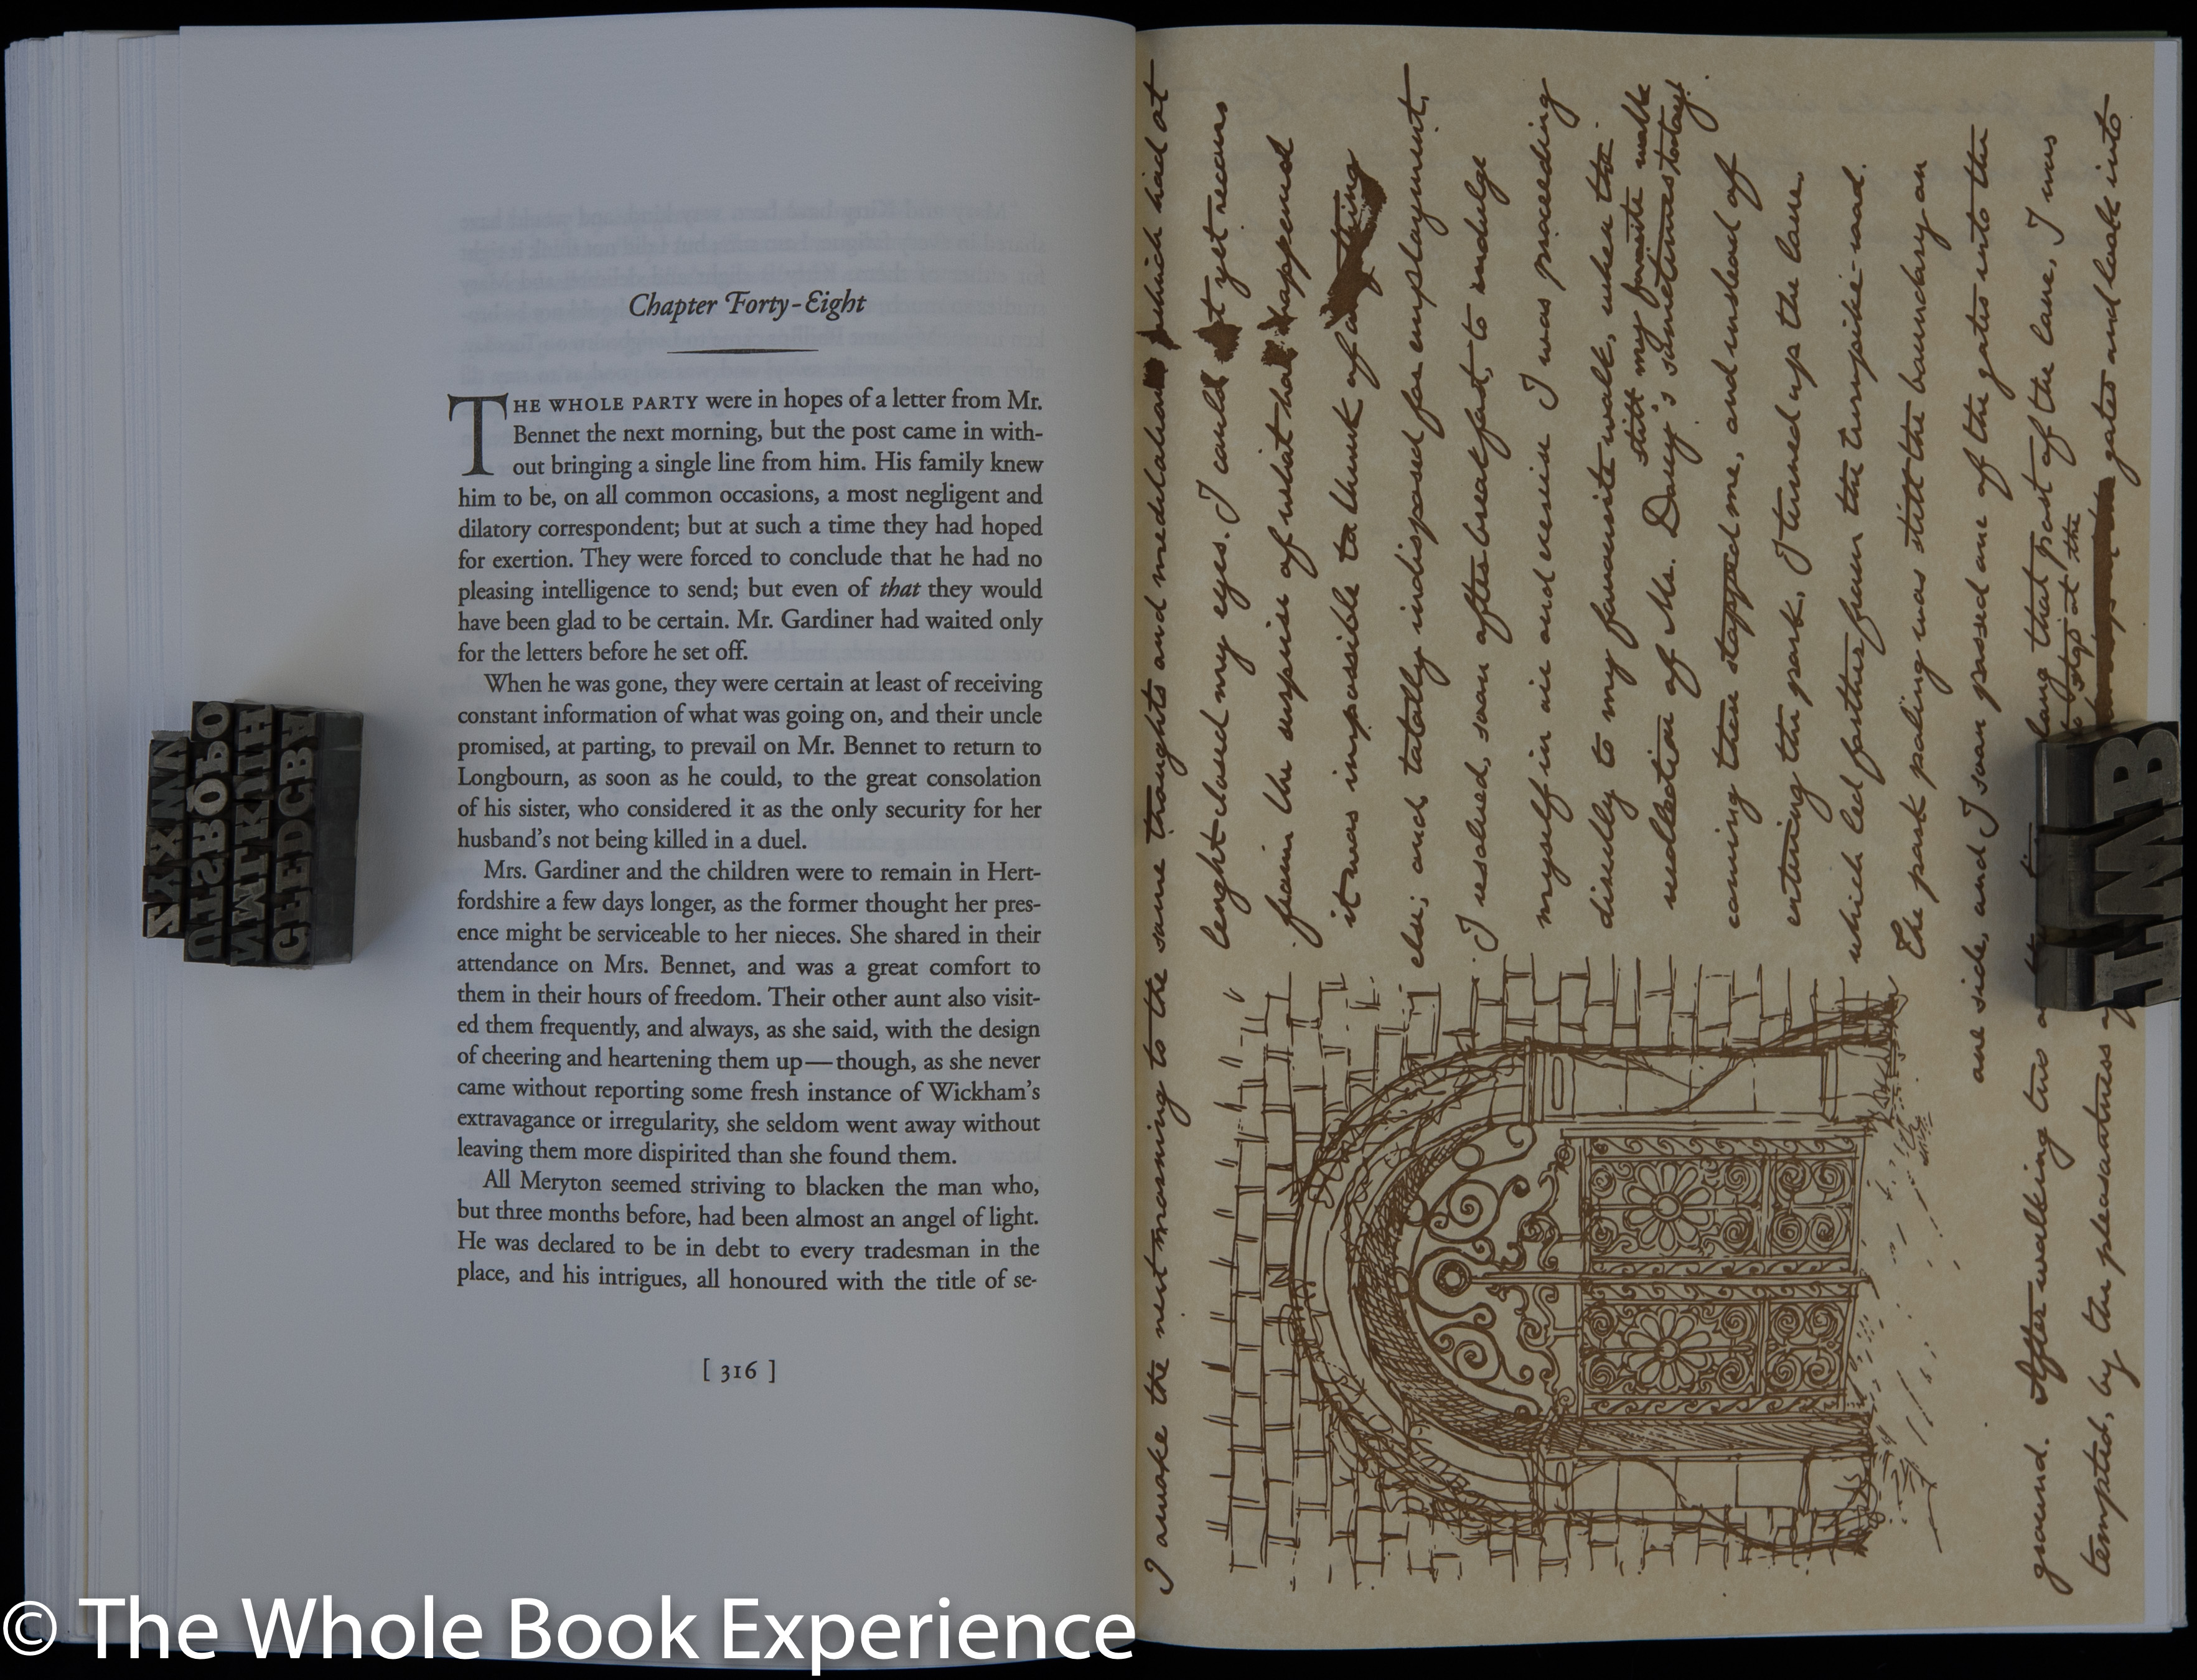 Chapter Forty-Eight
THE WHOLE PARTY were in hopes of a letter from Mr.
Bennet the next morning, but the post came in with-
out bringing a single line from him. His family knew
him to be, on all common occasions, a most negligent and
dilatory correspondent; but at such a time they had hoped
for exertion. They were forced to conclude that he had no
pleasing intelligence to send; but even of that they would
have been glad to be certain. Mr. Gardiner had waited only
for the letters before he set off.
When he was gone, they were certain at least of receiving
constant information of what was going on, and their uncle
promised, at parting, to prevail on Mr. Bennet to return to
Longbourn, as soon as he could, to the great consolation
of his sister, who considered it as the only security for her
husband's not being killed in a duel.
Mrs. Gardiner and the children were to remain in Hert-
fordshire a few days longer, as the former thought her pres-
ence might be serviceable to her nieces. She shared in their
attendance on Mrs. Bennet, and was a great comfort to
them in their hours of freedom. Their other aunt also visit-
ed them frequently, and always, as she said, with the design
of cheering and heartening them up—though, as she never
came without reporting some fresh instance of Wickham's
extravagance or irregularity, she seldom went away without
leaving them more dispirited than she found them.
All Meryton seemed striving to blacken the man who,
but three months before, had been almost an angel of light.
He was declared to be in debt to every tradesman in the
place, and his intrigues, all honoured with the title of se-
[ 316 ]
I awoke the next morning to the same thoughts and which had at
lenght closed my eyes. I could yet
from the surprise of what had happened
it was impossible to think of anything
else; and totally indisposed for employment,
I resolved, soon after breakfast, to indulge
myself in air and exercise I was proceeding
directly to my favourite walk, when the
still my favorite walk
recollection of Mr. Darcy's sometimes
coming there stopped me, and instead of
entering the park, I turned up the lane,
which led farther from the turnpike-road.
The park paling was still the boundary on
one side, and I soon passed one of the gates into the
ground. After walking two along that part of the lane, I was
to stop at the
tempted, by the pleasantness gates and look into
TWB
© The Whole Book Experience